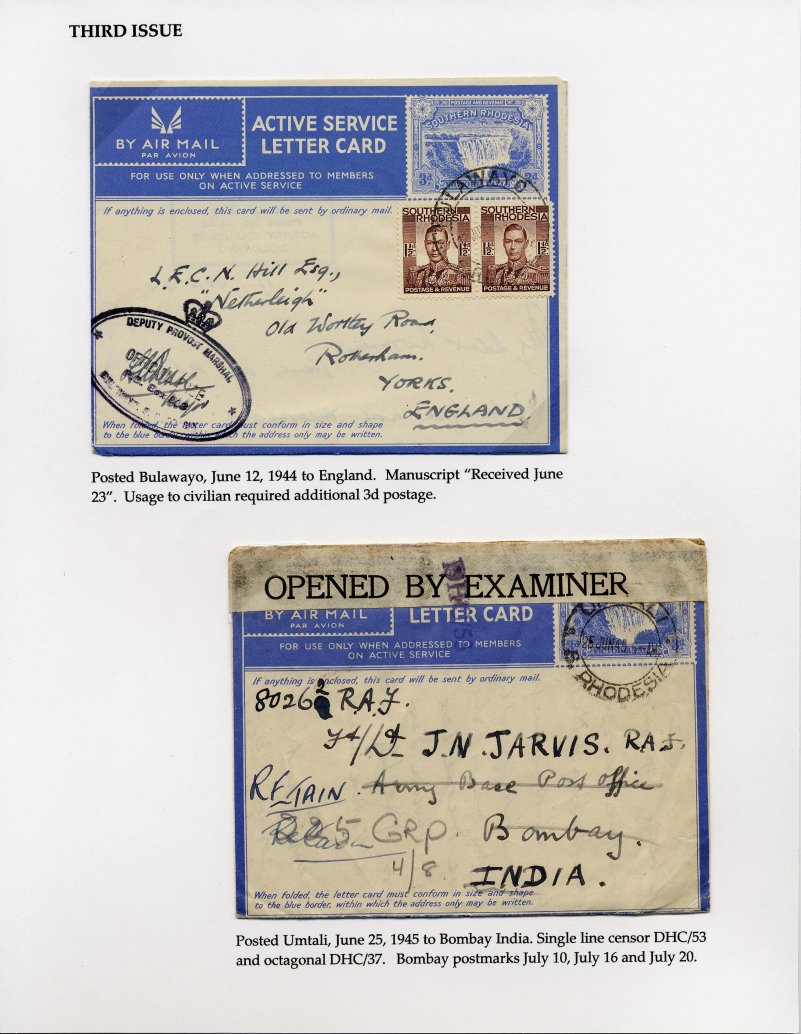 THIRD ISSUE
BY AIR MAIL
PAR AVION
ACTIVE SERVICE
LETTER CARD
FOR USE ONLY WHEN ADDRESSED TO MEMBERS
ON ACTIVE SERVICE
POSTAGE AND REVENUE
SOUTHERN RHODESIA
3d 3d
BULAWAYO
If anything is enclosed, this card will be sent by ordinary mail.
SOUTHERN RHODESIA
1½D
POSTAGE & REVENUE
SOUTHERN RHODESIA
1½D
POSTAGE & REVENUE
L.E.C.N. Hill Esq.,
"Netherleigh"
Old Wortley Road,
Rotherham.
YORKS.
ENGLAND
DEPUTY PROVOST MARSHAL
When folded, the letter card must conform in size and shape
to the blue border, within which the address only may be written.
Posted Bulawayo, June 12, 1944 to England. Manuscript “Received June
23”. Usage to civilian required additional 3d postage.
OPENED BY EXAMINER
BY AIR MAIL
PAR AVION
LETTER CARD
FOR USE ONLY WHEN ADDRESSED TO MEMBERS
ON ACTIVE SERVICE
UMTALI
S. RHODESIA
If anything is enclosed, this card will be sent by ordinary mail.
80262 R.A.F.
Ft/Lt J.N. JARVIS. R.A.F.
RETAIN. Army Base Post Office
225 GRP. Bombay.
4/8. INDIA.
When folded, the letter card must conform in size and shape
to the blue border, within which the address only may be written.
Posted Umtali, June 25, 1945 to Bombay India. Single line censor DHC/53
and octagonal DHC/37. Bombay postmarks July 10, July 16 and July 20.